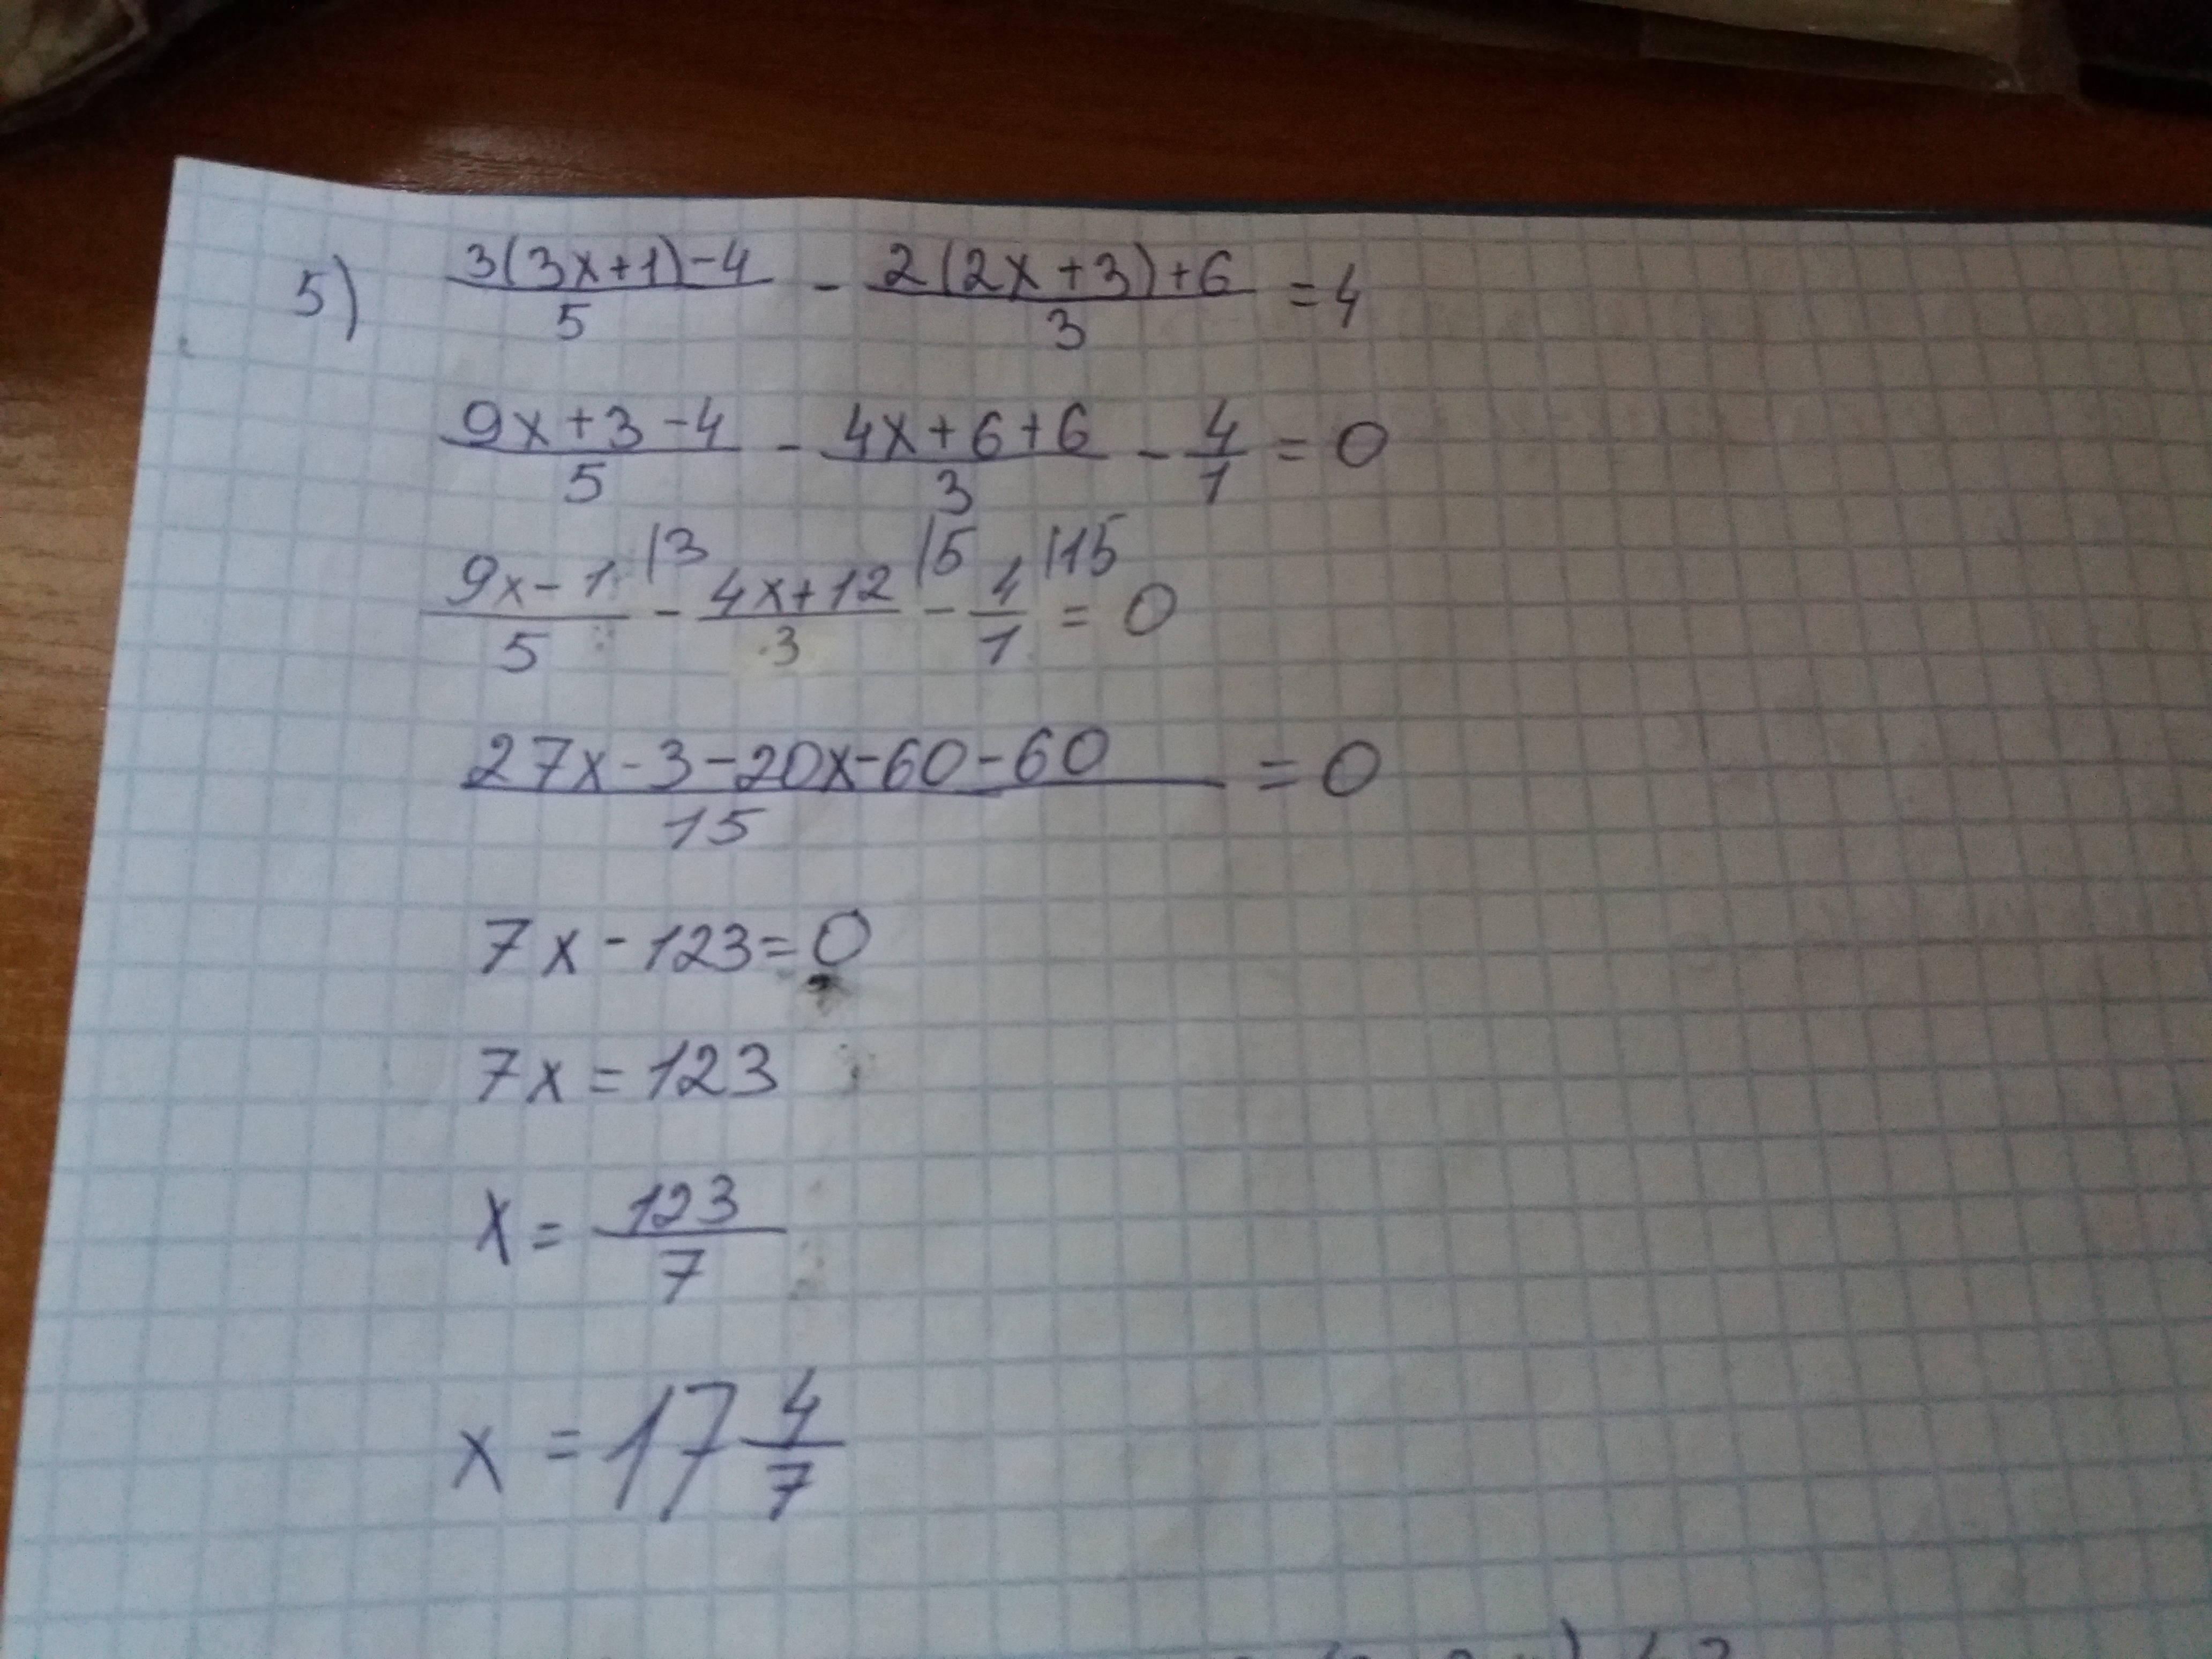 5) (3(3x+1)-4)/5 - (2(2x+3)+6)/3 = 4
(9x+3-4)/5 - (4x+6+6)/3 - 4/1 = 0
(9x-1)/5 |3 - (4x+12)/3 |5 - 4/1 |15 = 0
(27x-3-20x-60-60)/15 = 0
7x-123=0
7x=123
x=123/7
x=17 4/7